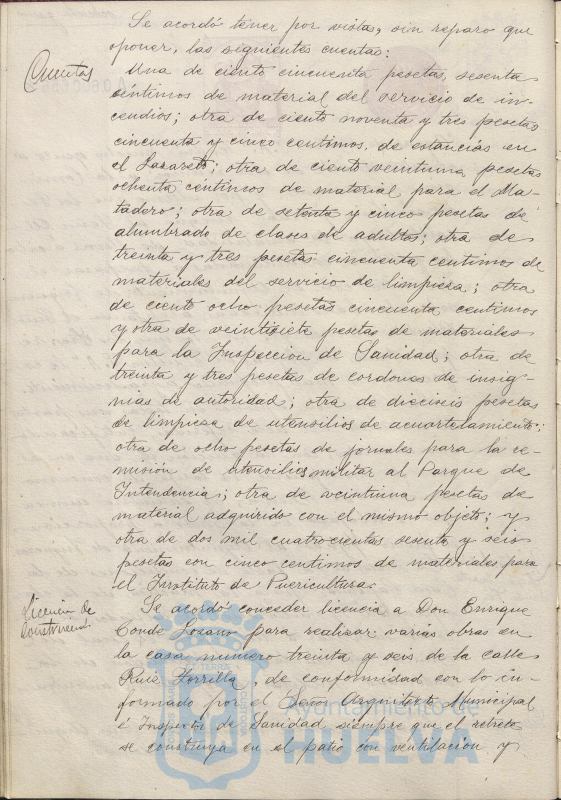 Se acordó tener por vistas, sin reparo que
oponer, las siguientes cuentas:
Cuentas
Una de ciento cincuenta pesetas, sesenta
céntimos de material del servicio de in-
cendios; otra de ciento noventa y tres pesetas
cincuenta y cinco centimos, de estancias en
el Lazareto; otra de ciento veintuna pesetas
ochenta centimos de material para el Ma-
tadero; otra de setenta y cinco pesetas de
alumbrado de clases de adultos; otra de
treinta y tres pesetas cincuenta centimos de
materiales del servicio de limpieza; otra
de ciento ocho pesetas cincuenta centimos
y otra de veintisiete pesetas de materiales
para la Inspeccion de Sanidad; otra de
treinta y tres pesetas de cordones de insig-
nias de autoridad; otra de dieciseis pesetas
de limpieza de utensilios de acuartelamiento;
otra de ocho pesetas de jornales para la re-
misión de utensilios militar al Parque de
Intendencia; otra de veintiuna pesetas de
material adquirido con el mismo objeto; y
otra de dos mil cuatrocientas sesenta y seis
pesetas con cinco centimos de materiales para
el Instituto de Puericultura.
Licencia de
Se acordó conceder licencia a Don Enrique
Conde Lozano para realizar varias obras en
la casa numero treinta y seis de la calle
de conformidad con lo in-
formado por el Señor Arquitecto Municipal
é Inspector de Sanidad siempre que el retrete
se construya en el patio con ventilación y
Ayuntamiento de
HUELVA